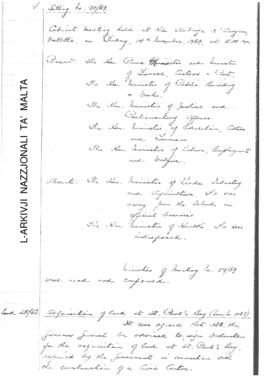 Sitting No. 90/69
Cabinet Meeting held at the Auberge d'Aragon
Valletta on Friday, 14th November 1969, at
Present: The Hon. Prime Minister and Minister
of
The Hon. Minister of Public Building
and Works.
The Hon. Minister of Justice and
Parliamentary Affairs
The Hon. Minister of Education, Culture
and Tourism
The Hon. Minister of Labour, Employment
and Welfare.
Absent: The Hon. Minister of Trade, Industry
and Agriculture who was
away from the Island on
official business
The Hon. Minister of Health who was
indisposed.
Minutes of Meeting No. 89/69
were read and confirmed.
Acquisition of land at St. Paul's Bay
It was agreed that the
Governor General be advised to sign
for the acquisition of land at St. Paul's Bay,
required by the Government in connection with
the construction of a Civic Centre.
L-ARKIVJI NAZZJONALI TA' MALTA